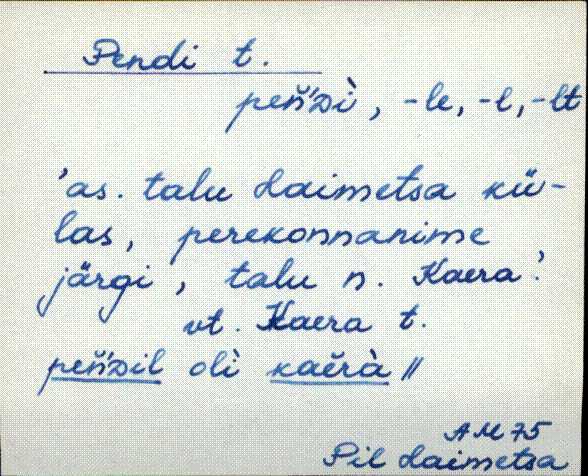 Pendi t.
peň́ᴅì, -le, -l, -lt
'as. talu Laimetsa kü-
las, perekonnanime
järgi, talu n. Kaera'.
vt. Kaera t.
peň́ᴅil olì̬ kaĕrà ||
AM 75
Pil Laimetsa